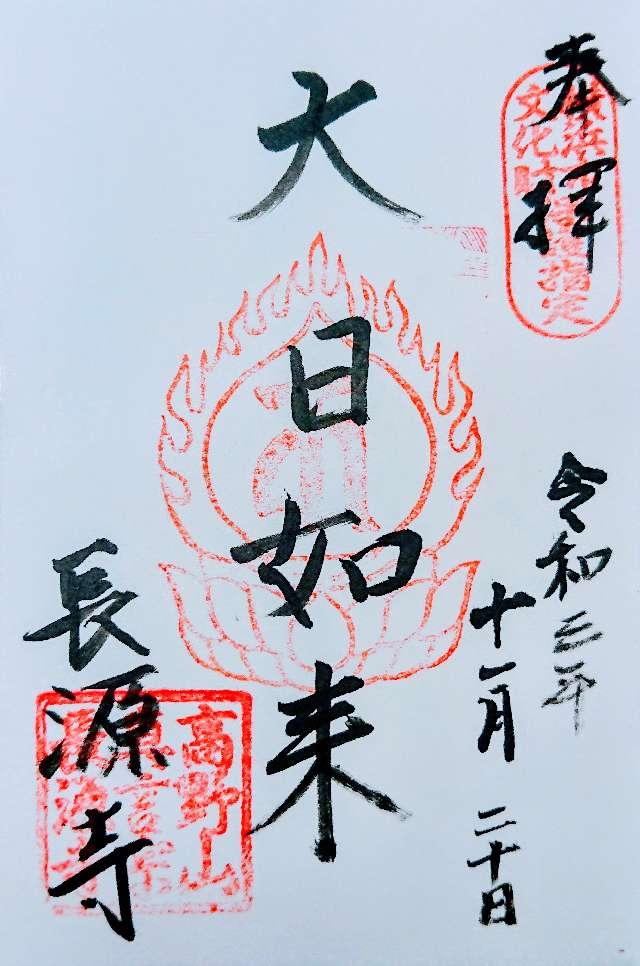 奉拝
令和三年
十一月 二十日
大日如来
長源寺
高野山
文化
指定